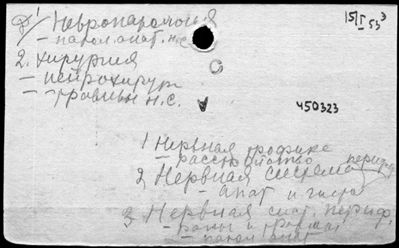 1) Невропатология
15/I 53³
– патол. анат. н.с.
2. хирургия
– нейрохирург
– травмы н.с.
450323
1 Нервная трофика
– расстройство
2, Нервная система перифер
– анат и гист
3 Нервная сист. периф.
– раны и травмы
– патол анат